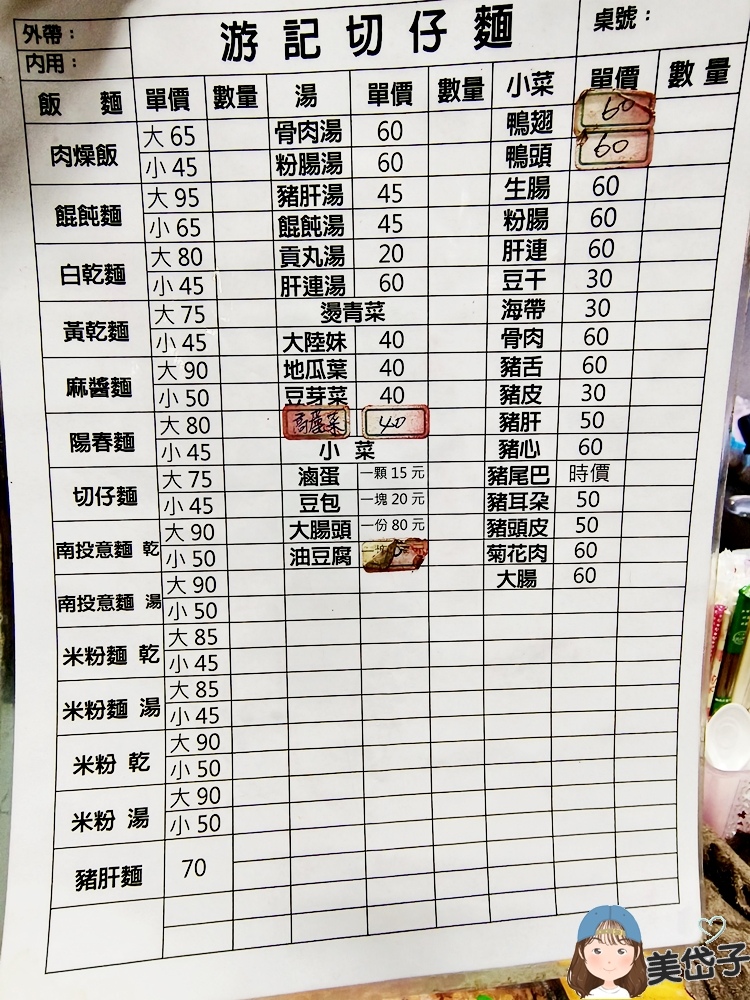 外帶：
內用：
游記切仔麵
桌號：
飯 麵 單價 數量 湯 單價 數量 小菜 單價 數量
肉燥飯 大 65 骨肉湯 60 鴨翅 60
小 45 粉腸湯 60 鴨頭 60
餛飩麵 大 95 豬肝湯 45 生腸 60
小 65 餛飩湯 45 粉腸 60
白乾麵 大 80 貢丸湯 20 肝連 60
小 45 肝連湯 60 豆干 30
黃乾麵 大 75 燙青菜 海帶 30
小 45 大陸妹 40 骨肉 60
麻醬麵 大 90 地瓜葉 40 豬舌 60
小 50 豆芽菜 40 豬皮 30
陽春麵 大 80 高麗菜 40 豬肝 50
小 45 小 菜 豬心 60
切仔麵 大 75 滷蛋 一顆 15 元 豬尾巴 時價
小 45 豆包 一塊 20 元 豬耳朵 50
南投意麵 乾 大 90 大腸頭 一份 80 元 豬頭皮 50
小 50 油豆腐 菊花肉 60
南投意麵 湯 大 90 大腸 60
小 50
米粉麵 乾 大 85
小 45
米粉麵 湯 大 85
小 45
米粉 乾 大 90
小 50
米粉 湯 大 90
小 50
豬肝麵 70
美岱子